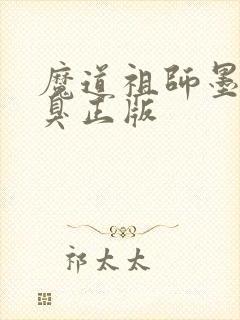 魔道祖师墨
臭正版
祁太太